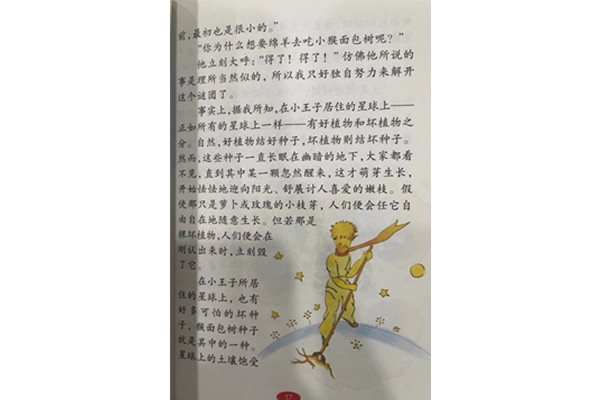 前,最初也是很小的。”
“你为什么想要绵羊去吃小猴面包树呢？”
他立刻大呼:“得了！得了！”仿佛他所说的
事是理所当然似的，所以我只好独自努力来解开
这个谜团了。
事实上,据我所知,在小王子居住的星球上——
正如所有的星球上一样——有好植物和坏植物之
分。自然,好植物结好种子,坏植物则结坏种子。
然而,这些种子一直长眠在幽暗的地下,大家都看
不见,直到其中某一颗忽然醒来，这才萌芽生长，
开始怯怯地迎向阳光、舒展讨人喜爱的嫩枝。假
使那只是萝卜或玫瑰的小枝芽，人们便会任它自
由自在地随意生长。但若那是
棵坏植物,人们便会在
刚认出来时,立刻毁
了它。
在小王子所居
住的星球上，也有
好多可怕的坏种
子，猴面包树种子
就是其中的一种。
星球上的土壤饱受
17